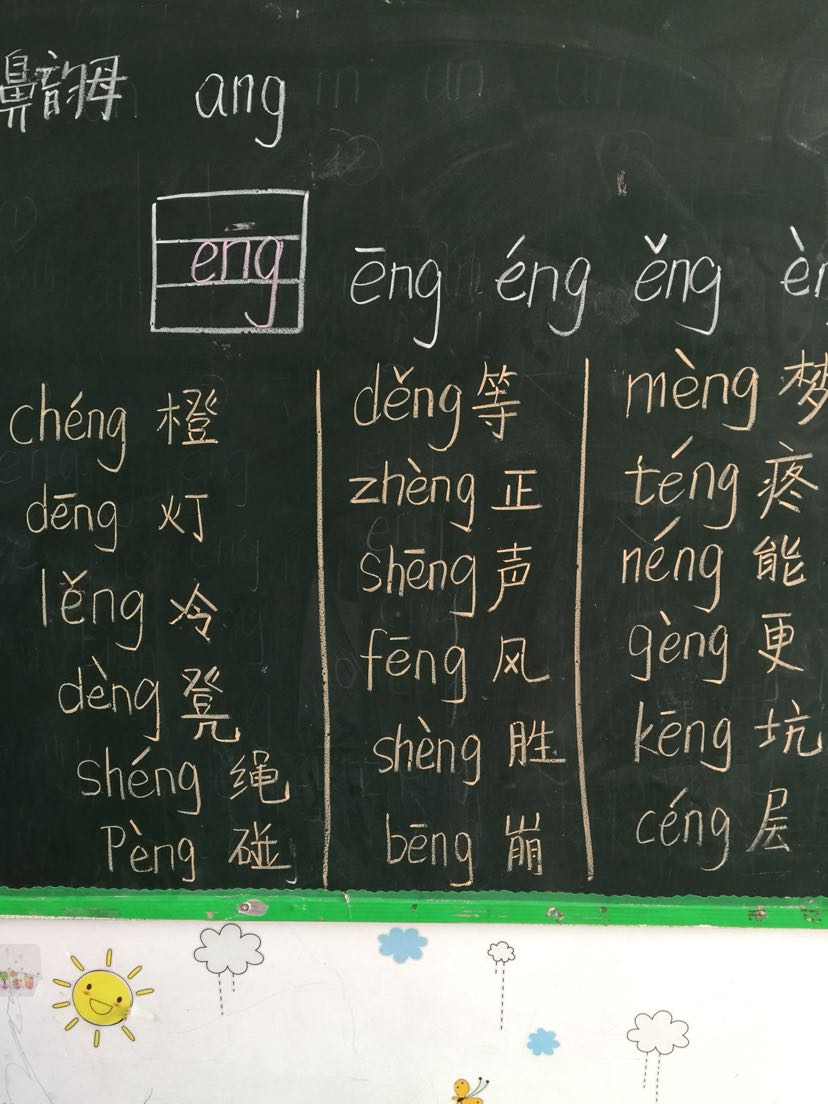 鼻韵母 ang
eng ēng éng ěng
chéng 橙
dēng 灯
lěng 冷
dèng 凳
shéng 绳
Pèng 碰
děng 等
zhèng 正
shēng 声
fēng 风
shèng 胜
bēng 崩
mèng 梦
téng 疼
néng 能
gèng 更
kēng 坑
céng 层